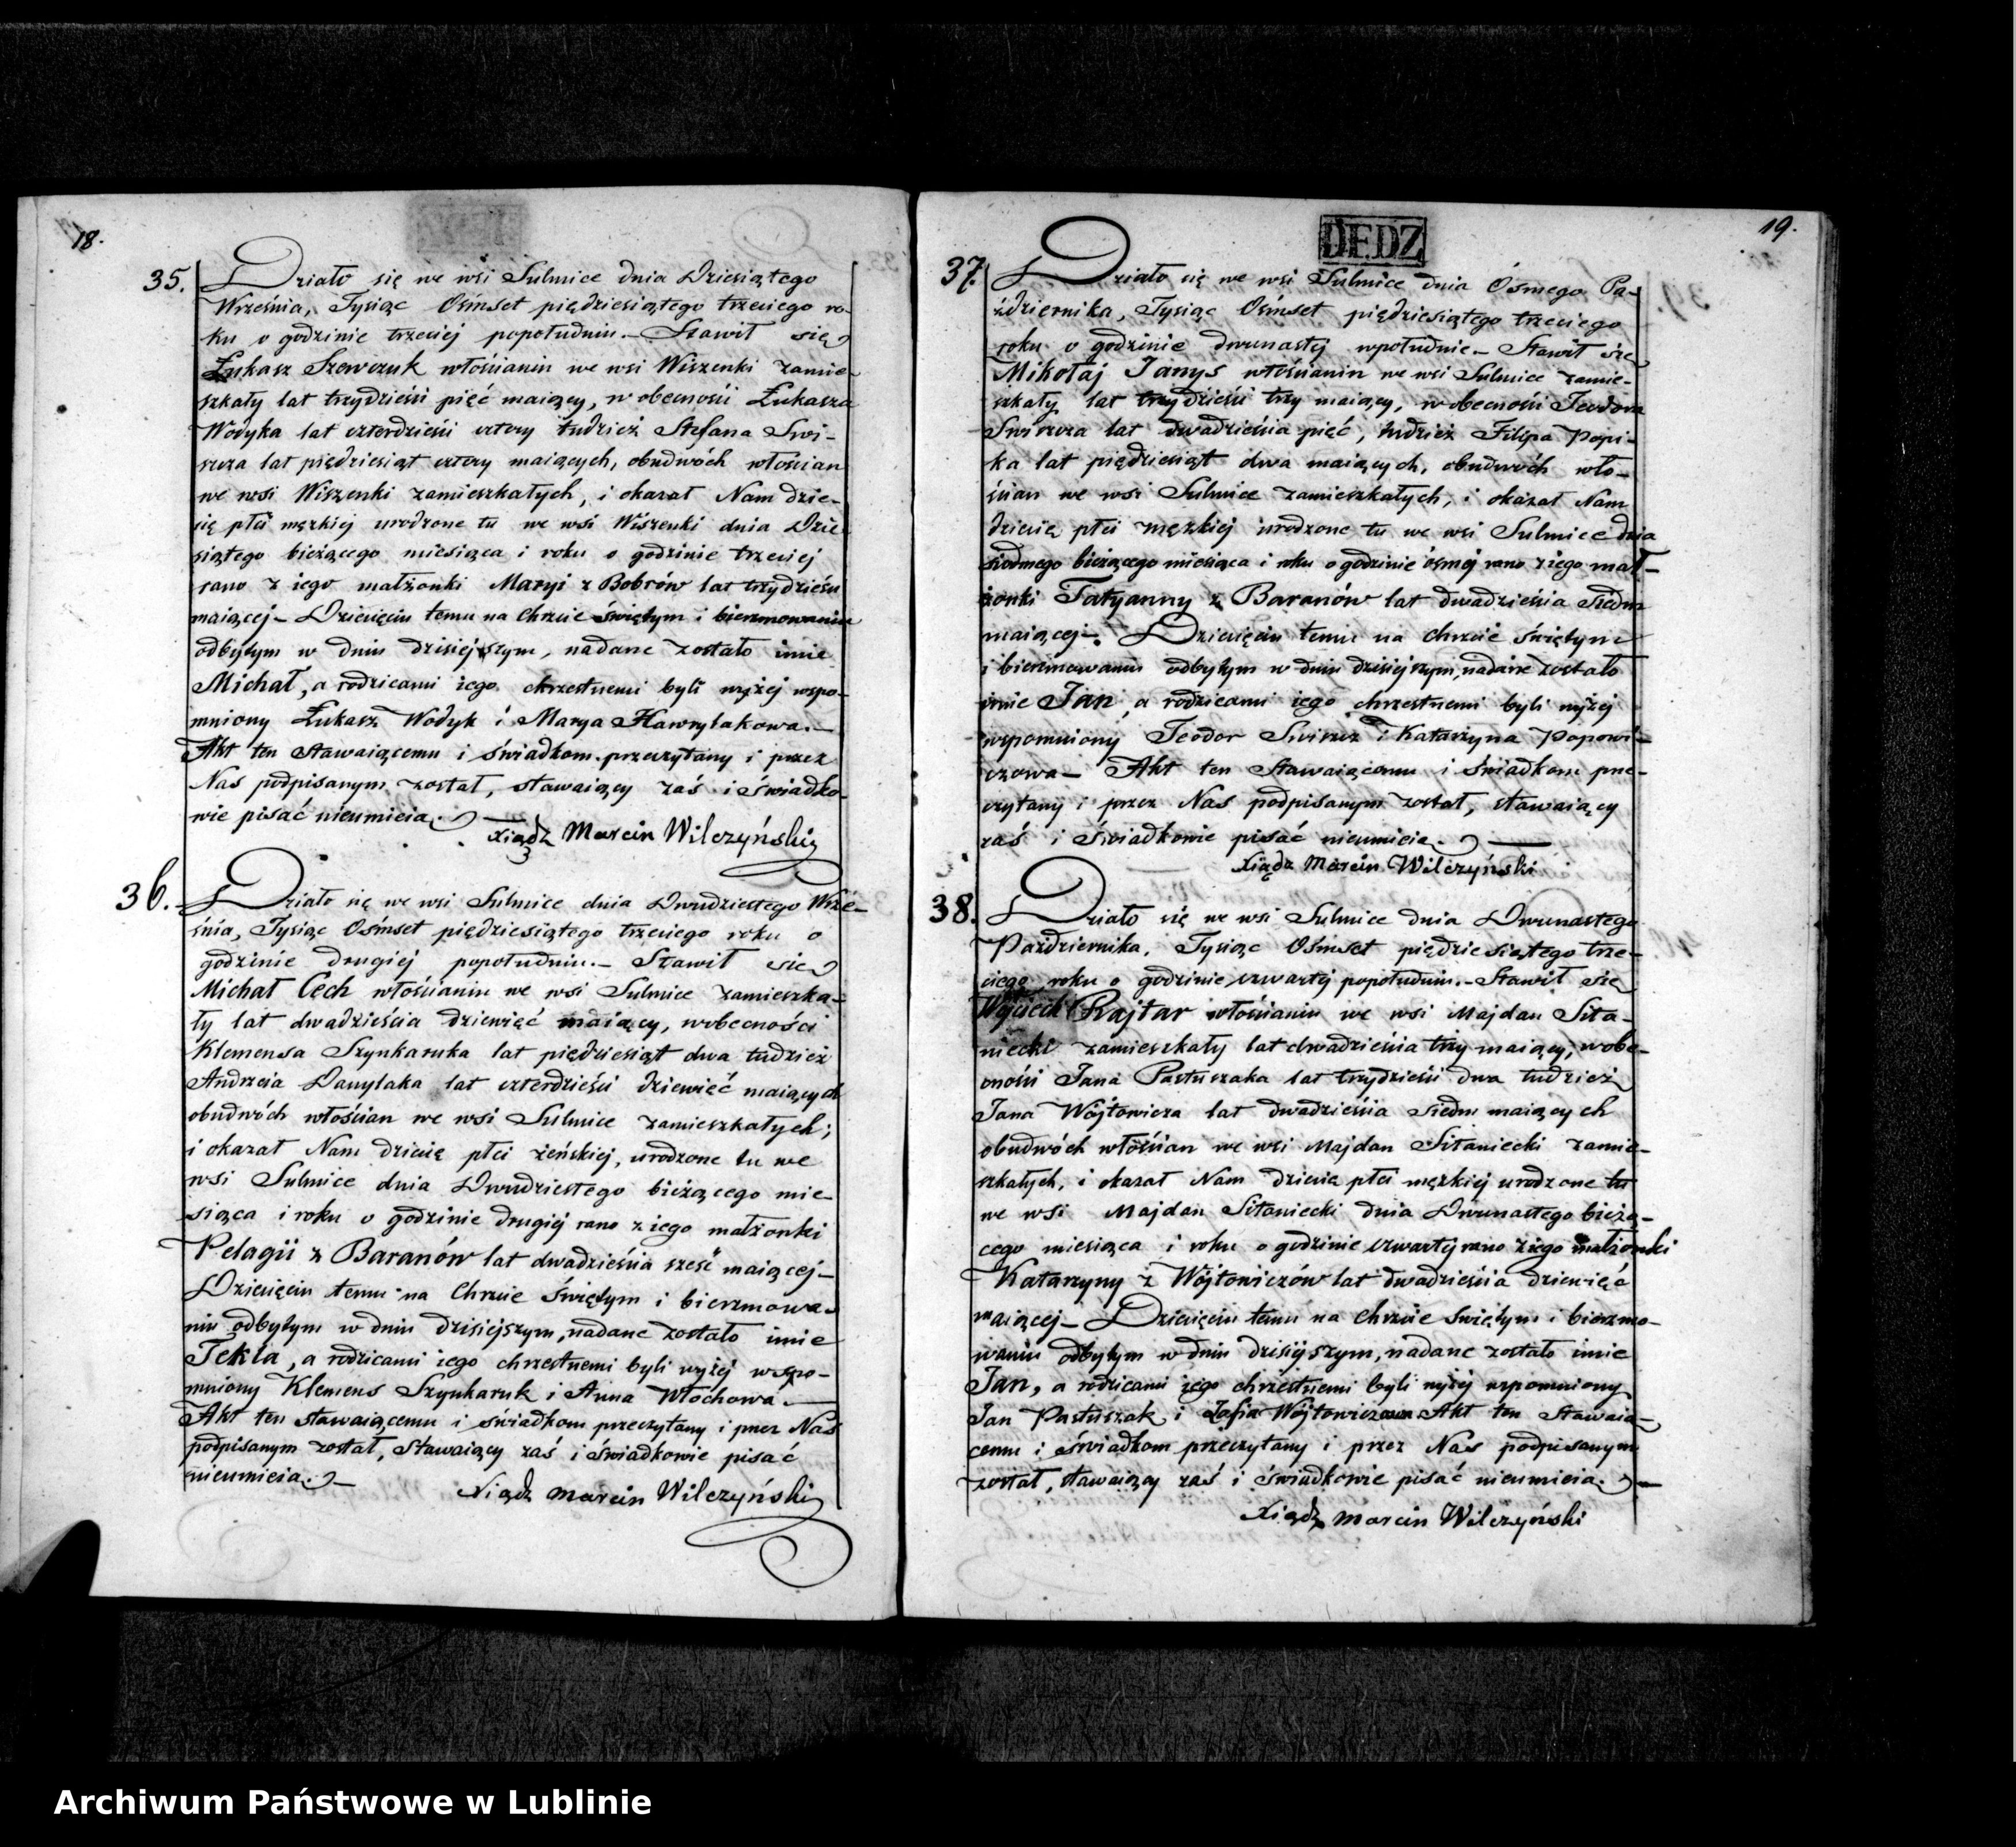 18.
35. Działo się we wsi Sulmice dnia Dziesiątego
Września, Tysiąc Ośmset pięździesiątego trzeciego ro-
ku o godzinie trzeciej popołudniu. – Stawił się
Łukasz Szewczuk włościanin we wsi Wiszenki zamie-
szkały lat trzydzieści pięć maiący, w obecności Łukasza
Wodyka lat czterdzieści cztery tudzież Stefana Swi-
szcza lat pięździesiąt cztery maiących, obudwóch włościan
we wsi Wiszenki zamieszkałych, i okazał Nam dzie-
cię płci męzkiej urodzone tu we wsi Wiszenki dnia Dzie-
siątego bieżącego miesiąca i roku o godzinie trzeciej
rano z iego małżonki Maryi z Bobrów lat trzydzieści
maiącej – Dziecięciu temu na Chrzcie świętym i bierzmowaniu
odbytym w dniu dzisiejszym, nadane zostało imie
Michał, a rodzicami iego chrzestnemi byli wyżej wspo-
mniony Łukasz Wodyk i Marya Hawrylakowa. –
Akt ten stawaiącemu i świadkom przeczytany i przez
Nas podpisanym został, stawaiący zaś i świadko-
wie pisać nieumieia. –
Xiądz Marcin Wilczyński
36. Działo się we wsi Sulmice dnia Dwudziestego Wrze-
śnia, Tysiąc Ośmset pięździesiątego trzeciego roku o
godzinie drugiej popołudniu. – Stawił się
Michał Cech włościanin we wsi Sulmice zamieszka-
ły lat dwadzieścia dziewięć maiący, w obecności
Klemensa Szynkaruka lat pięździesiąt dwa tudzież
Andrzeia Danylaka lat czterdzieści dziewięć maiących
obudwóch włościan we wsi Sulmice zamieszkałych;
i okazał Nam dziecię płci żeńskiej, urodzone tu we
wsi Sulmice dnia Dwudziestego bieżącego mie-
siąca i roku o godzinie drugiej rano z iego małżonki
Pelagii z Baranów lat dwadzieścia sześć maiącej –
Dziecięciu temu na Chrzcie Świętym i bierzmowa-
niu odbytym w dniu dzisiejszym, nadane zostało imie
Tekla, a rodzicami iego chrzestnemi byli wyżej wspo-
mniony Klemens Szynkaruk i Anna Włochowa. –
Akt ten stawaiącemu i świadkom przeczytany i przez Nas
podpisanym został, Stawaiący zaś i świadkowie pisać
nieumieia. –
Xiądz Marcin Wilczyński
DEDZ
19.
37. Działo się we wsi Sulmice dnia Ósmego Pa-
ździernika, Tysiąc Ośmset pięździesiątego trzeciego
roku o godzinie dwunastej wpołudnie – Stawił się
Mikołaj Janys włościanin we wsi Sulmice zamie-
szkały lat trzydzieści trzy maiący, w obecności Teodora
Swiszcza lat dwadzieścia pięć, tudzież Filipa Popi-
ka lat pięździesiąt dwa maiących, obudwóch wło-
ścian we wsi Sulmice zamieszkałych, i okazał Nam
dziecię płci męzkiej urodzone tu we wsi Sulmice dnia
siódmego bieżącego miesiąca i roku o godzinie ósmej rano z iego mał-
żonki Tatyanny z Baranów lat dwadzieścia siedm
maiącej – Dziecięciu temu na chrzcie świętym
i bierzmowaniu odbytym w dniu dzisiejszym, nadane zostało
imie Jan, a rodzicami iego chrzestnemi byli wyżej
wspomniony Teodor Swiszcz i Katarzyna Popowi-
czowa – Akt ten Stawaiącemu i świadkom prze-
czytany i przez Nas podpisanym został, stawaiący
zaś i świadkowie pisać nieumieia. –
Xiądz Marcin Wilczyński
38. Działo się we wsi Sulmice dnia Dwunastego
Października, Tysiąc Ośmset pięździesiątego trze-
ciego roku o godzinie czwartej popołudniu. – Stawił się
Wojciech Rajtar włościanin we wsi Majdan Sita-
niecki zamieszkały lat dwadzieścia trzy maiący, w obe-
cności Jana Pastuszaka lat trzydzieści dwa tudzież
Jana Wójtowicza lat dwadzieścia siedm maiących
obudwóch włościan we wsi Majdan Sitaniecki zamie-
szkałych, i okazał Nam dziecię płci męzkiej urodzone tu
we wsi Majdan Sitaniecki dnia Dwunastego bieżą-
cego miesiąca i roku o godzinie czwartej rano z iego małżonki
Katarzyny z Wójtowiczów lat dwadzieścia dziewięć
maiącej – Dziecięciu temu na Chrzcie świętym i bierzmo-
waniu odbytym w dniu dzisiejszym, nadane zostało imie
Jan, a rodzicami iego chrzestnemi byli wyżej wspomniony
Jan Pastuszak i Zofia Wójtowiczowa Akt ten Stawaią-
cemu i świadkom przeczytany i przez Nas podpisanym
został, stawaiący zaś i świadkowie pisać nieumieia. –
Xiądz Marcin Wilczyński
Archiwum Państwowe w Lublinie